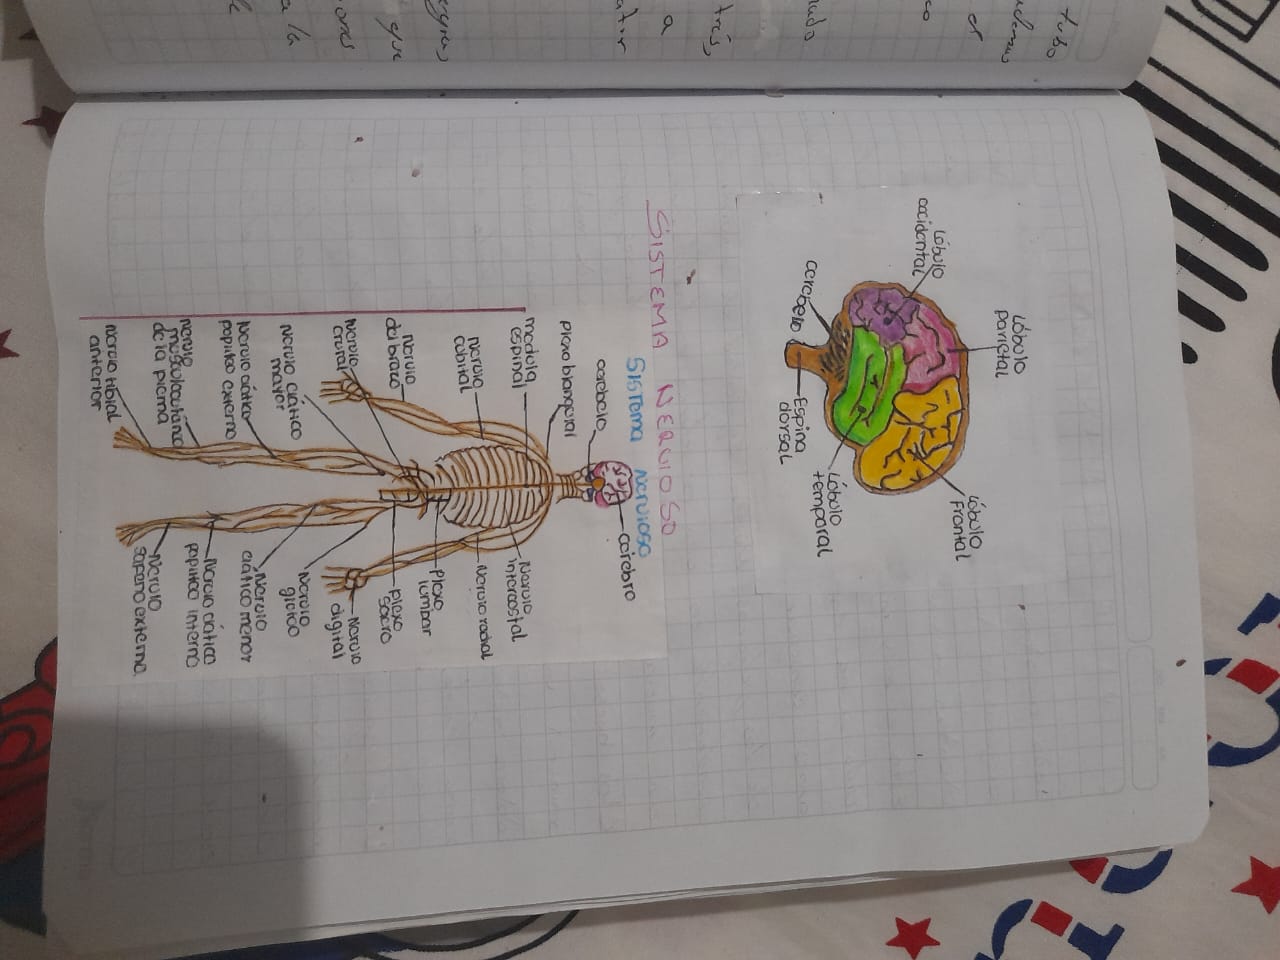 Lóbulo
parietal
lóbulo
occidental
lóbulo
Frontal
cerebelo
Espina
dorsal
Lóbulo
temporal
SISTEMA NERVIOSO
Sistema nervioso
cerebro
cerebelo
plexo
medula
espinal
Nervio
intercostal
Nervio
cubital
Nervio radial
Nervio
del brazo
plexo
lumbar
plexo
sacro
Nervio
crural
Nervio
digital
Nervio ciático
mayor
Nervio
gluteo
Nervio ciático
popliteo externo
Nervio
ciático menor
Nervio
musculocutáneo
de la pierna
Nervio ciático
popliteo interno
Nervio tibial
anterior
Nervio
safeno externo
tubo
et
co
ludo
trás,
a
que
a la